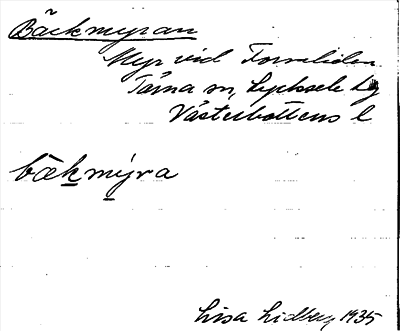 Bäckmyran
Myr vid Forneliden
Tärna sn, Lycksele lg
Västerbottens l
bækmýra
Lisa Lidberg 1935